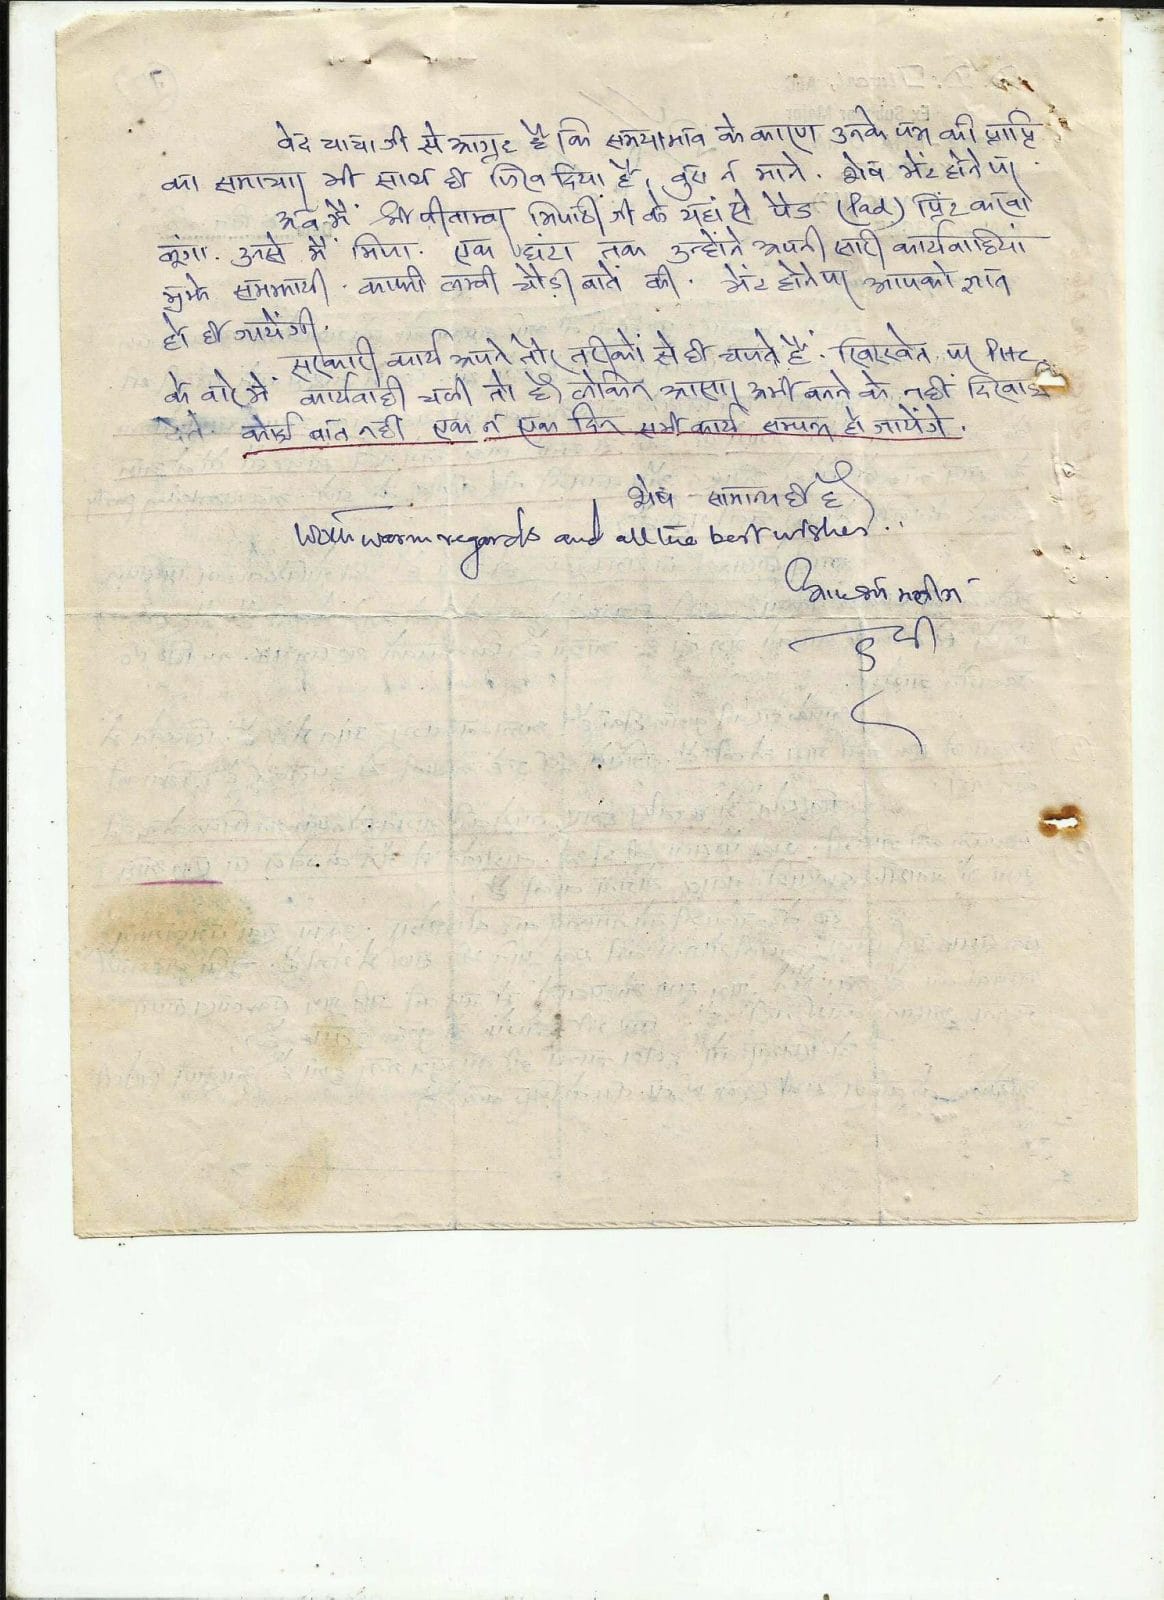 वेद चाचा जी से आग्रह है कि समयाभाव के कारण उनके पत्र की प्राप्ति
का समाचार भी साथ ही लिख दिया है, बुरा न माने. शेष भेंट होने पर.
अब मैं श्री पीताम्बर त्रिपाठी जी के यहां से पैड (Pad) प्रिंट करवा
लूंगा. उनसे मैं मिला. एक घंटा तक उन्होंने अपनी सारी कार्यवाहियां
मुझे समझायी. काफी लम्बी चौड़ी बातें की. भेंट होने पर आपको ज्ञात
हो ही जायेंगी.
सरकारी कार्य अपने तौर तरीकों से ही चलते हैं. पर PHC
के बारे में कार्यवाही चली तो है लेकिन आसार अभी बनने के नहीं दिखाई
देते. कोई बात नहीं एक न एक दिन सभी कार्य सम्पन्न हो जायेंगे.
शेष - सामान्य ही है
With warm regards and all the best wishes..